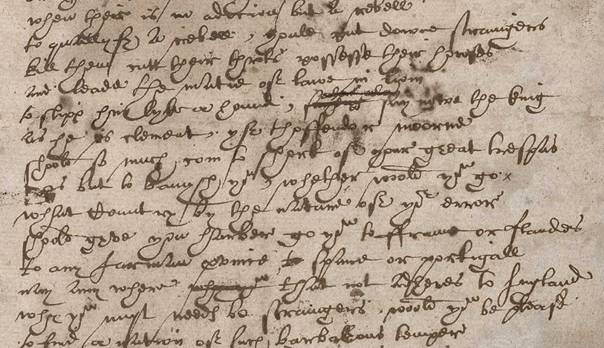 when ther is no adicion but a rebell
to quallyfy a rebell, youle put downe straingers
kill them cutt their throts possesse their howses
and leade the matie of lawe in liom
to slipp him lyke a hound; say nowe the king
as he is clement,. yf thoffendor moorne
shoold so much com to short of your great trespas
as but to banysh yo​u, whether woold yo​u go.
what Country by the nature of yor error
shoold gyve you harber go yo​u to ffraunc or flanders
to any Iarman pvince, to spane or portigall
nay any where that not adheres to Ingland
why yo​u must needs be straingers. woold yo​u be pleasd
to find a nation of such barbarous temper